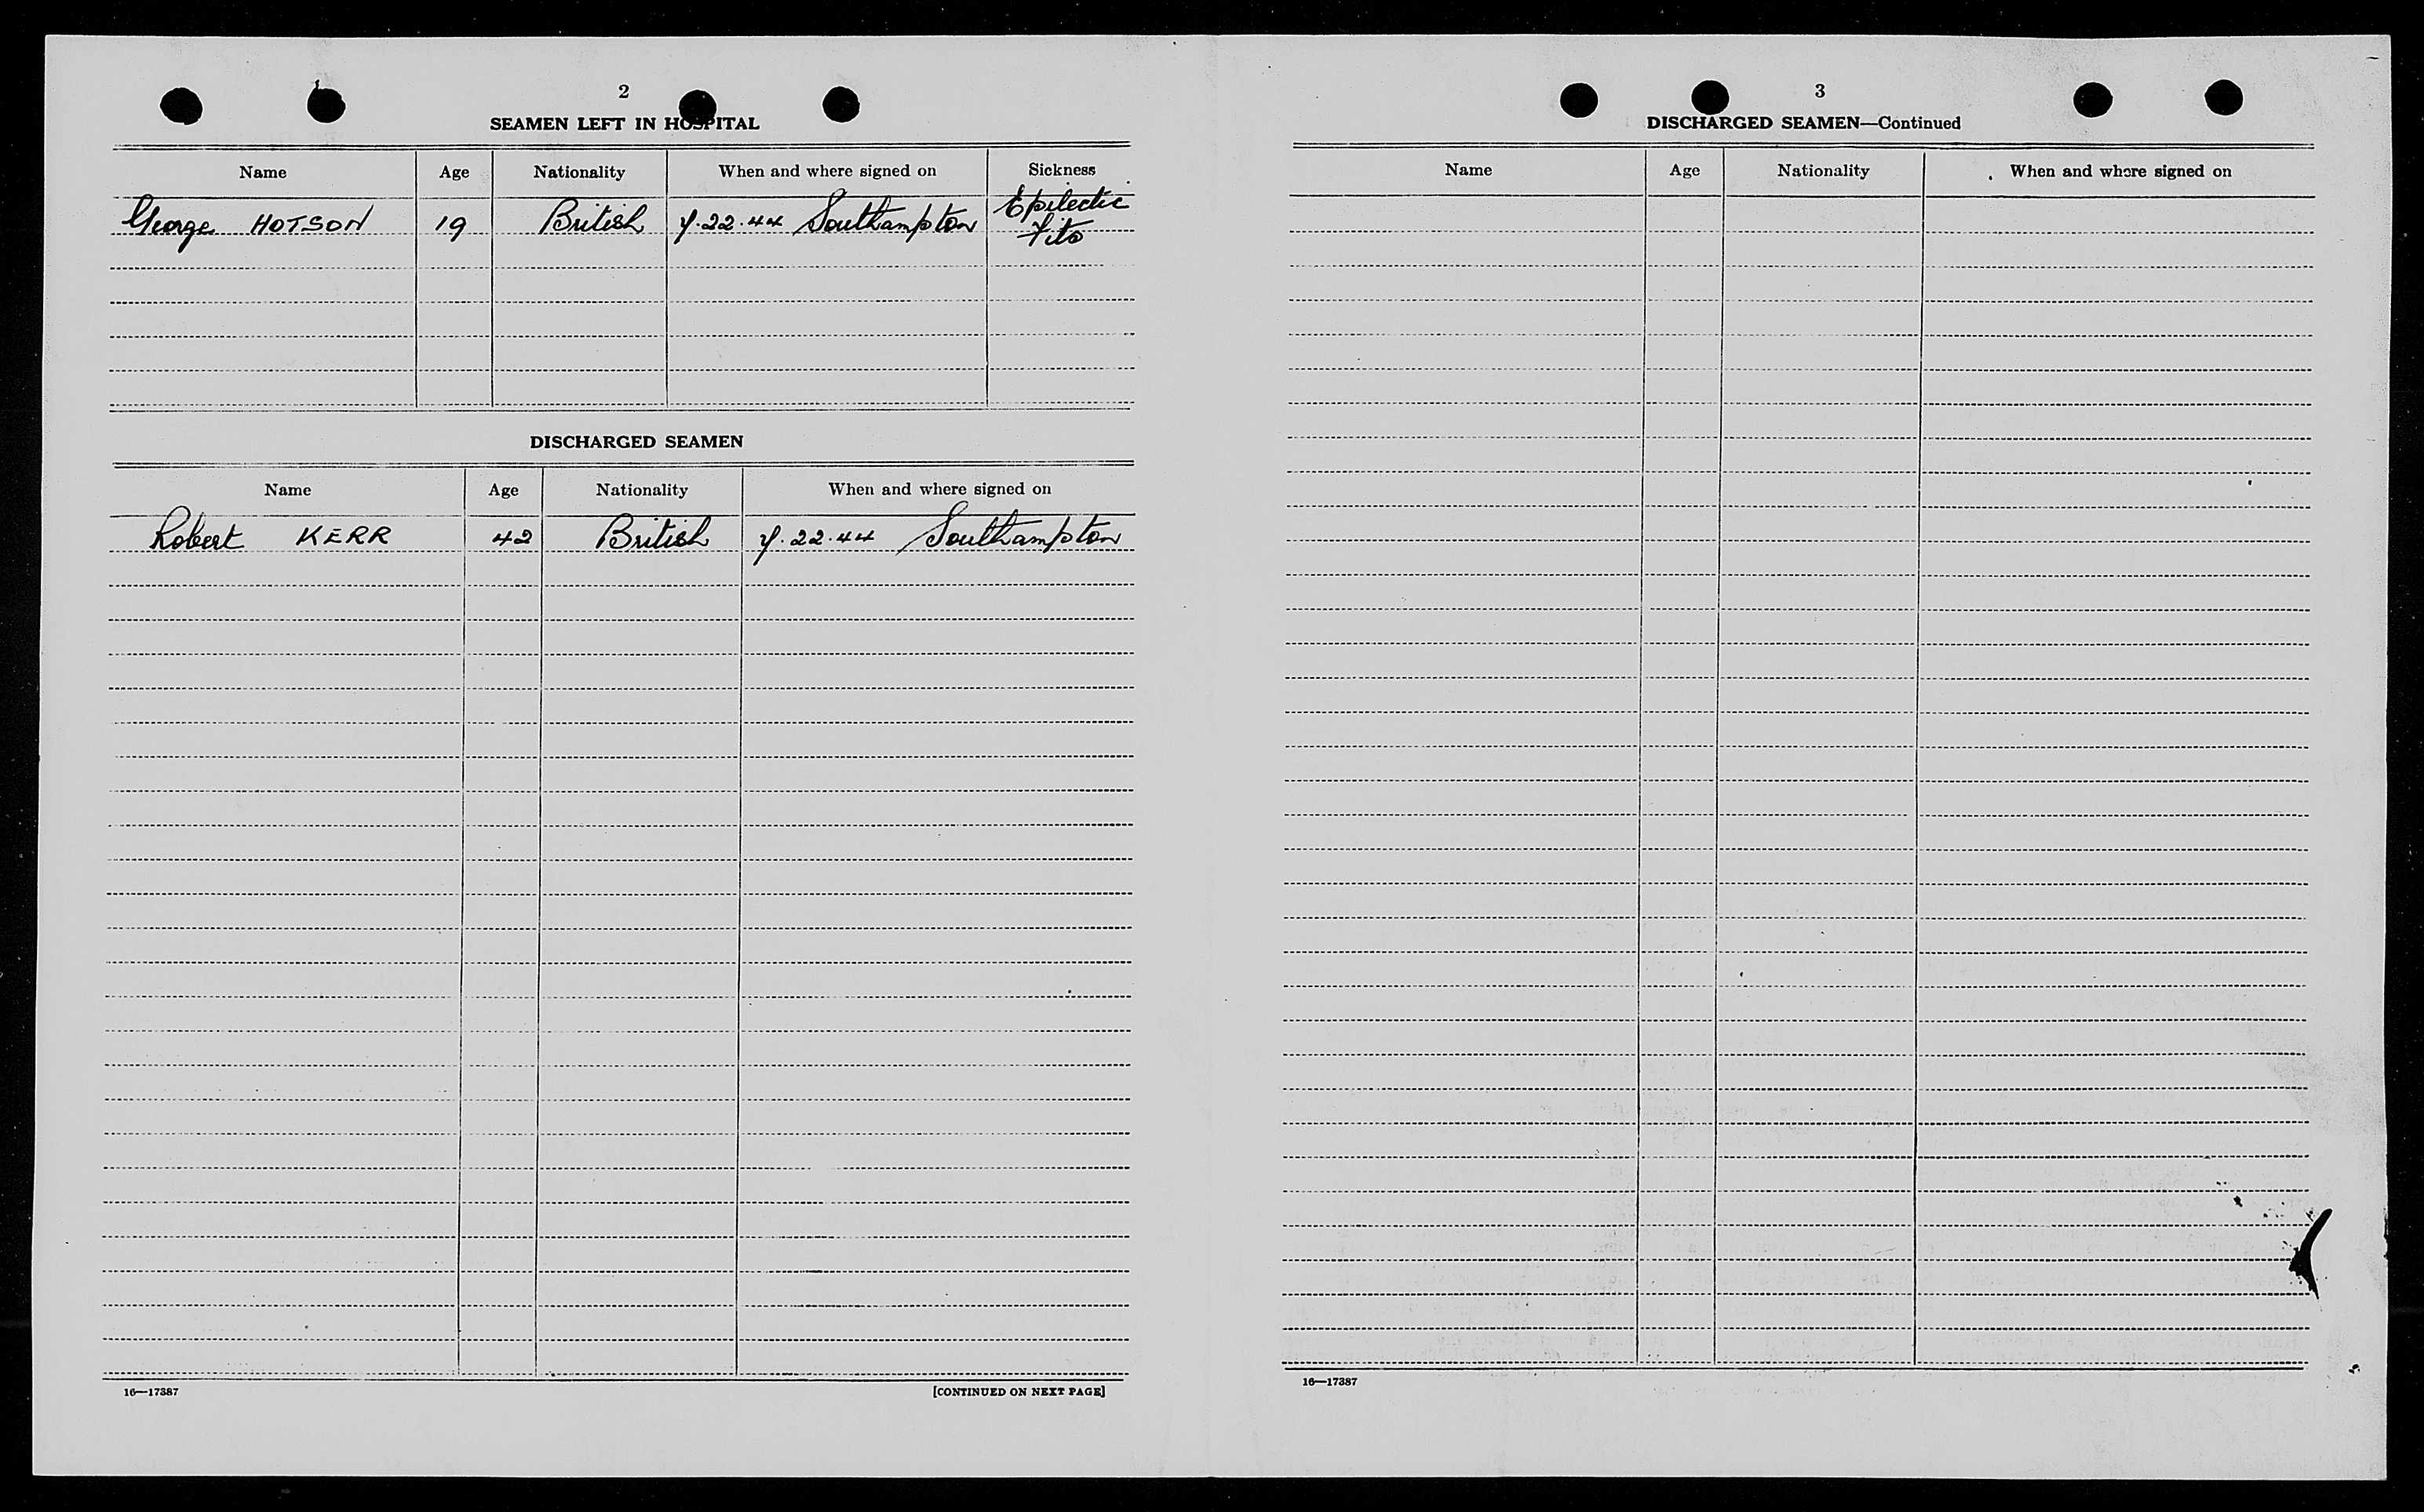 2
SEAMEN LEFT IN HOSPITAL
Name Age Nationality When and where signed on Sickness
George HOTSON 19 British 7.22.44 Southampton Epilectic
Fits
DISCHARGED SEAMEN
Name Age Nationality When and where signed on
Robert KERR 42 British 7.22.44 Southampton
16—17387 [CONTINUED ON NEXT PAGE]
3
DISCHARGED SEAMEN—Continued
Name Age Nationality When and where signed on
16—17387